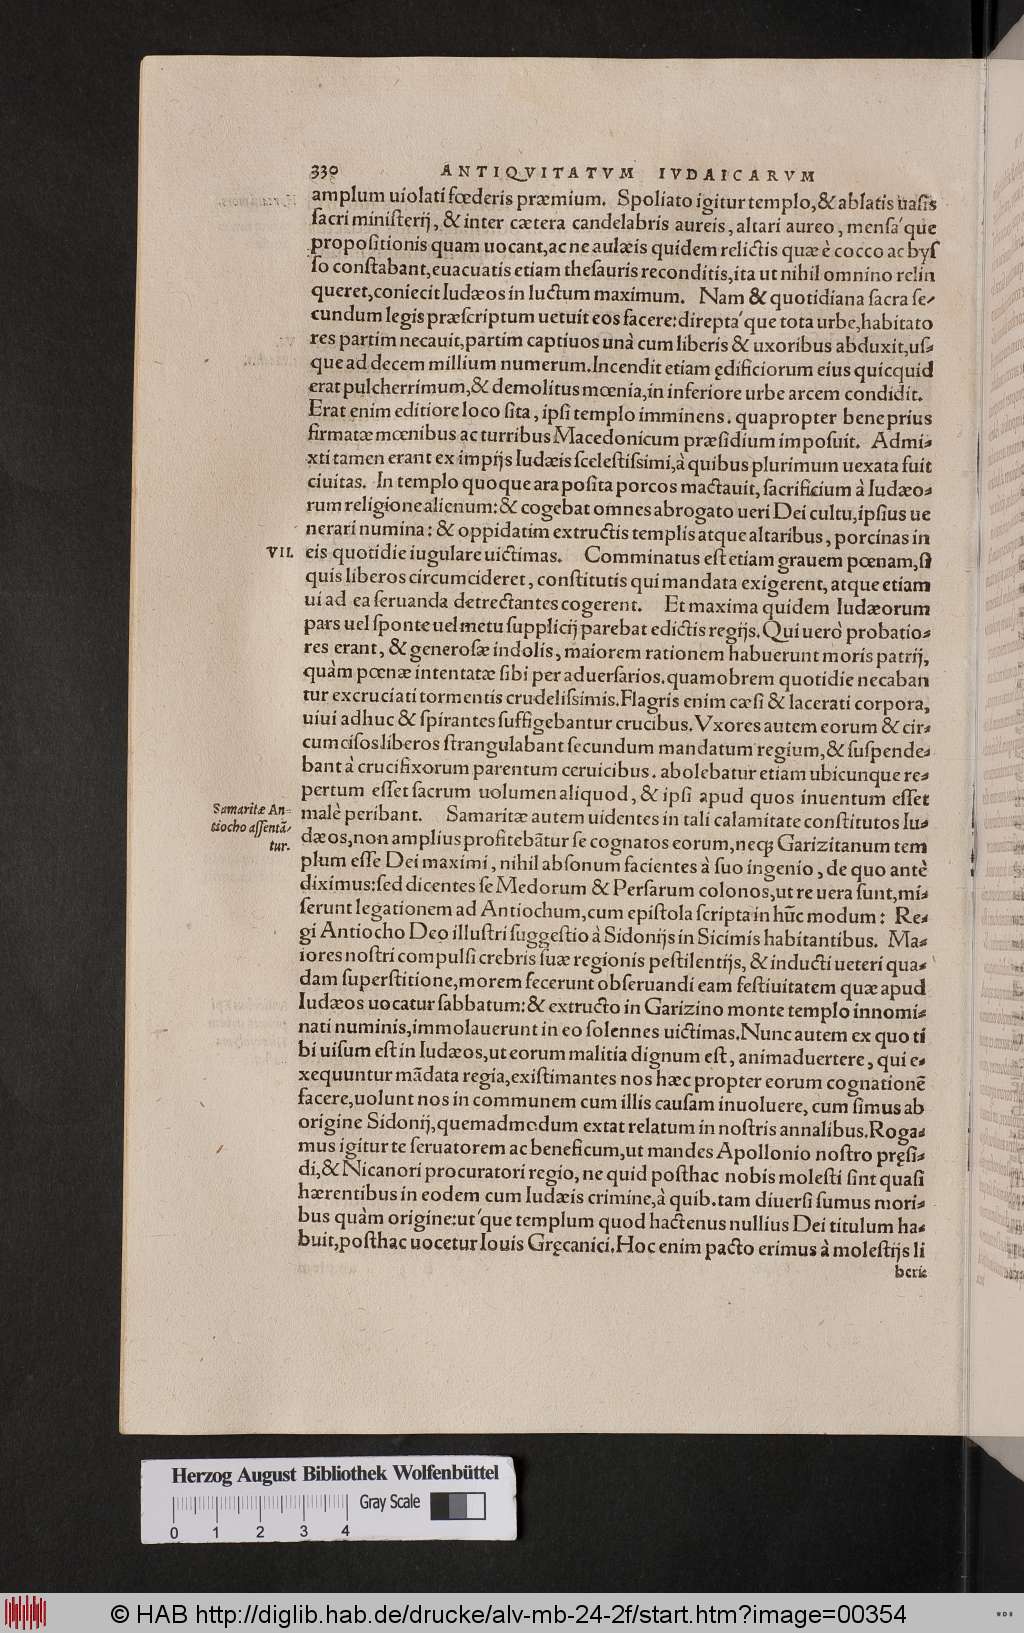 330 ANTIQVITATVM IVDAICARVM
amplum uiolati fœderis præmium. Spoliato igitur templo, & ablatis uasis
sacri ministerij, & inter cætera candelabris aureis, altari aureo, mensa´que
propositionis quam uocant, ac ne aulæis quidem relictis quæ è cocco ac bys
so constabant, euacuatis etiam thesauris reconditis, ita ut nihil omnino relin
queret, coniecit Iudæos in luctum maximum. Nam & quotidiana sacra se-
cundum legis præscriptum uetuit eos facere: direpta´que tota urbe, habitato
res partim necauit, partim captiuos unà cum liberis & uxoribus abduxit, us-
que ad decem millium numerum. Incendit etiam ędificiorum eius quicquid
erat pulcherrimum, & demolitus mœnia, in inferiore urbe arcem condidit.
Erat enim editiore loco sita, ipsi templo imminens. quapropter bene prius
firmatæ mœnibus ac turribus Macedonicum præsidium imposuit. Admi-
xti tamen erant ex impijs Iudæis scelestissimi, à quibus plurimum uexata fuit
ciuitas. In templo quoque ara posita porcos mactauit, sacrificium à Iudæo-
rum religione alienum: & cogebat omnes abrogato ueri Dei cultu, ipsius ue
nerari numina: & oppidatim extructis templis atque altaribus, porcinas in
VII. eis quotidie iugulare uictimas. Comminatus est etiam grauem pœnam, si
quis liberos circumcideret, constitutis qui mandata exigerent, atque etiam
ui ad ea seruanda detrectantes cogerent. Et maxima quidem Iudæorum
pars uel sponte uel metu supplicij parebat edictis regijs. Qui uerò probatio-
res erant, & generosæ indolis, maiorem rationem habuerunt moris patrij,
quàm pœnæ intentatæ sibi per aduersarios. quamobrem quotidie necaban
tur excruciati tormentis crudelissimis. Flagris enim cæsi & lacerati corpora,
uiui adhuc & spirantes suffigebantur crucibus. Vxores autem eorum & cir-
cumcisos liberos strangulabant secundum mandatum regium, & suspende-
bant à crucifixorum parentum ceruicibus. abolebatur etiam ubicunque re-
pertum esset sacrum uolumen aliquod, & ipsi apud quos inuentum esset
Samaritæ An-
tiocho assentã-
tur.
malè peribant. Samaritæ autem uidentes in tali calamitate constitutos Iu-
dæos, non amplius profitebãtur se cognatos eorum, neqꝫ Garizitanum tem
plum esse Dei maximi, nihil absonum facientes à suo ingenio, de quo antè
diximus: sed dicentes se Medorum & Persarum colonos, ut re uera sunt, mi-
serunt legationem ad Antiochum, cum epistola scripta in hũc modum: Re-
gi Antiocho Deo illustri suggestio à Sidonijs in Sicimis habitantibus. Ma-
iores nostri compulsi crebris suæ regionis pestilentijs, & inducti ueteri qua-
dam superstitione, morem fecerunt obseruandi eam festiuitatem quæ apud
Iudæos uocatur sabbatum: & extructo in Garizino monte templo innomi-
nati numinis, immolauerunt in eo solennes uictimas. Nunc autem ex quo ti
bi uisum est in Iudæos, ut eorum malitia dignum est, animaduertere, qui e-
xequuntur mãdata regia, existimantes nos hæc propter eorum cognationẽ
facere, uolunt nos in communem cum illis causam inuoluere, cum simus ab
origine Sidonij, quemadmodum extat relatum in nostris annalibus. Roga-
mus igitur te seruatorem ac beneficum, ut mandes Apollonio nostro pręsi-
di, & Nicanori procuratori regio, ne quid posthac nobis molesti sint quasi
hærentibus in eodem cum Iudæis crimine, à quib. tam diuersi sumus mori-
bus quàm origine: ut´que templum quod hactenus nullius Dei titulum ha-
buit, posthac uocetur Iouis Gręcanici. Hoc enim pacto erimus à molestijs li
beri:
Herzog August Bibliothek Wolfenbüttel
Gray Scale
0 1 2 3 4
© HAB http://diglib.hab.de/drucke/alv-mb-24-2f/start.htm?image=00354